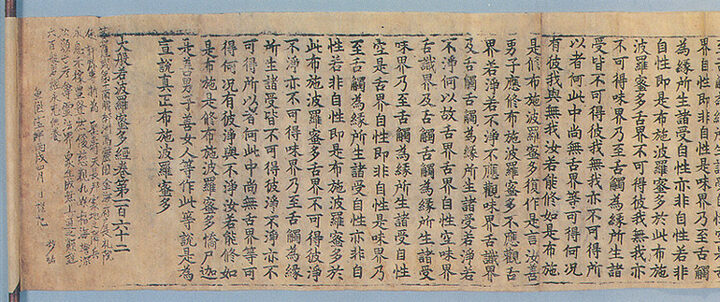 界自性即非自性是味界乃至舌觸
為緣所生諸受自性亦非自性若非
自性即是布施波羅蜜多於此布施
波羅蜜多舌界不可得彼我無我亦
不可得味界乃至舌觸為緣所生諸
受皆不可得彼我無我亦不可得所
以者何此中尚無舌界等可得何況
有彼我與無我汝若能修如是布施
是修布施波羅蜜多復作是言汝善
男子應修布施波羅蜜多不應觀舌
界若淨若不淨不應觀味界舌識界
及舌觸舌觸為緣所生諸受若淨若
不淨何以故舌界舌界自性空味界
舌識界及舌觸舌觸為緣所生諸受
味界乃至舌觸為緣所生諸受自性
空是舌界自性即非自性是味界乃
至舌觸為緣所生諸受自性亦非自
性若非自性即是布施波羅蜜多於
此布施波羅蜜多舌界不可得彼淨
不淨亦不可得味界乃至舌觸為緣
所生諸受皆不可得彼淨不淨亦不
可得所以者何此中尚無舌界等可
得何況有彼淨與不淨汝若能修如
是布施是修布施波羅蜜多憍尸迦
是善男子善女人等作此等說是為
宣說真正布施波羅蜜多
大般若波羅蜜多經卷第一百六十二